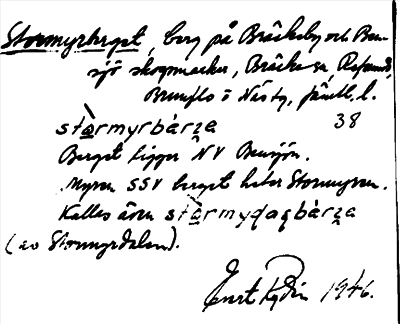 Stormyrberget, berg på Bräckeby och Ben-
sjö skogmarker, Bräcke sn, Refsund,
Brunflo o Näs tg, Jämtl. l.
stòrmyrbàrʒa 38
Berget ligger NV Bensjön.
Myren SSV berget heter Stormyren.
Kallas även stòrmydaɋbàrʒa
(av Stormyrdalen).
1946.